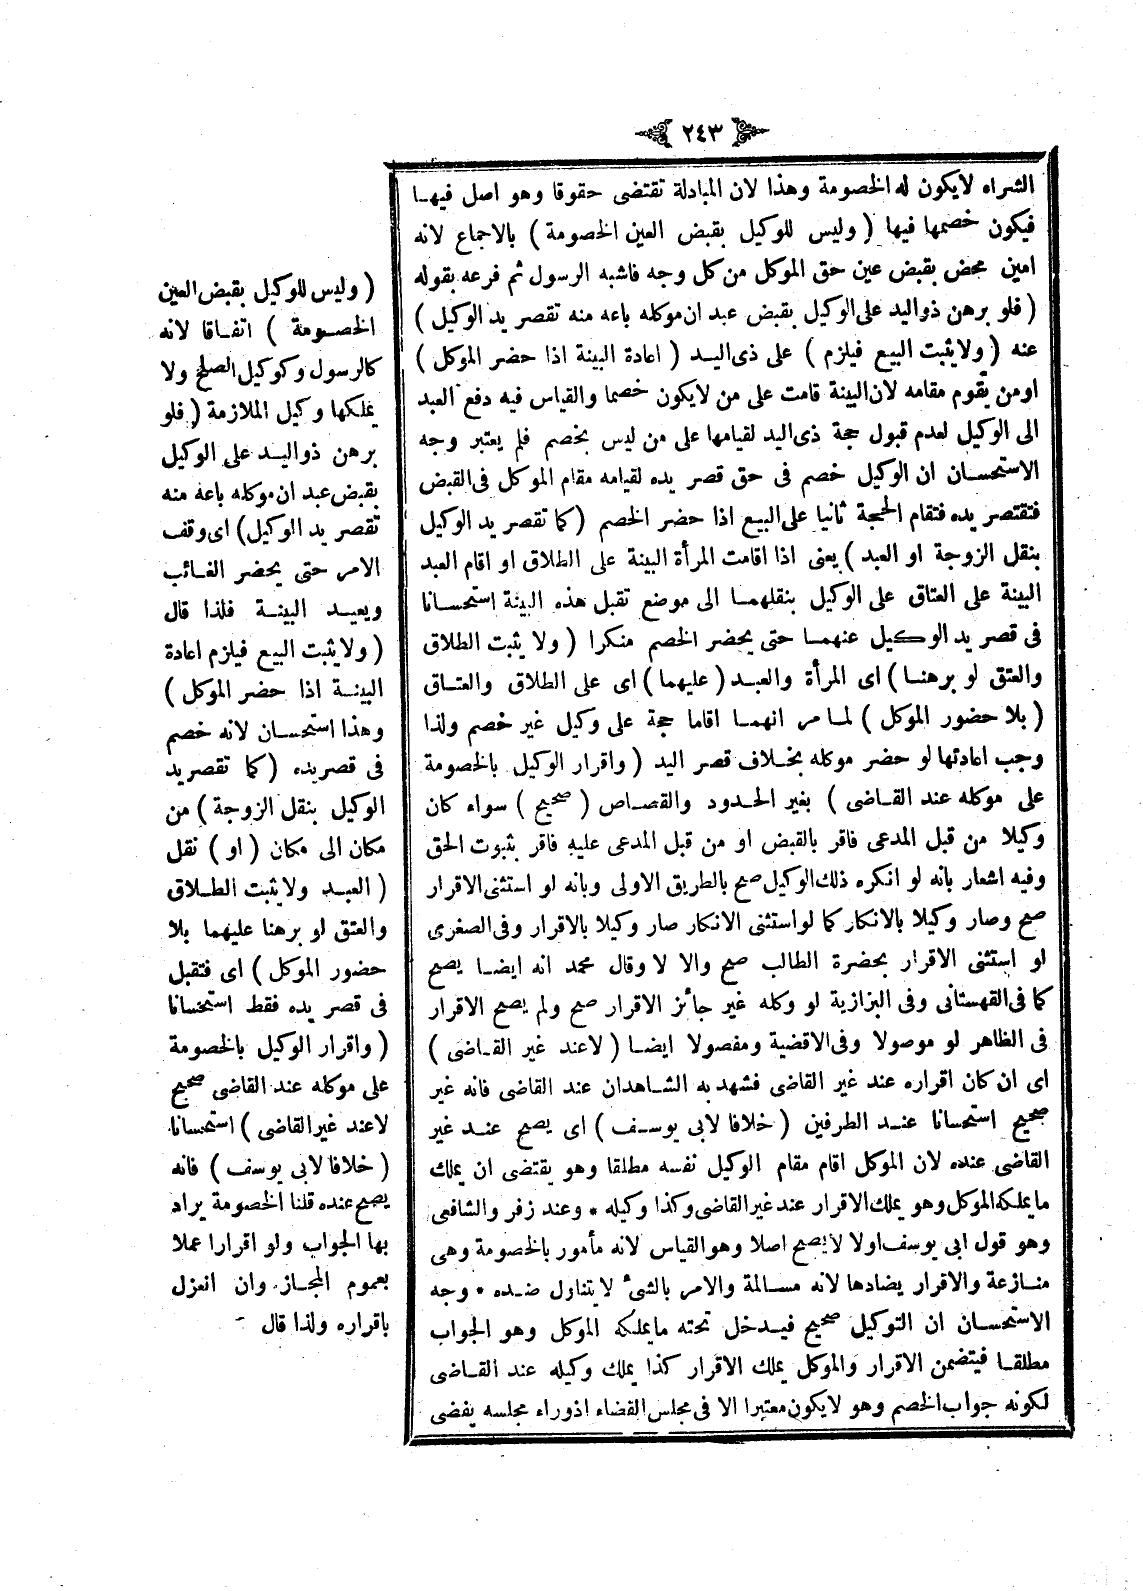 ٢٤٣
الشراء لايكون له الخصومة وهذا لان المبادلة تقتضى حقوقا وهو اصل فيها
فيكون خصمها فيها ( وليس للوكيل بقبض العين الخصومة ) بالاجماع لانه
امين محض بقبض عين حق الموكل من كل وجه فاشبه الرسول ثم فرعه بقوله
( فلو برهن ذواليد على الوكيل بقبض عبد ان موكله باعه منه تقصر يد الوكيل )
عنه ( ولايثبت البيع فيلزم ) على ذى اليد ( اعادة البينة اذا حضر الموكل )
اومن يقوم مقامه لان البينة قامت على من لايكون خصما والقياس فيه دفع العبد
الى الوكيل لعدم قبول حجة ذى اليد لقيامها على من ليس بخصم فلم يعتبر وجه
الاستحسان ان الوكيل خصم فى حق قصر يده لقيامه مقام الموكل فى القبض
فتقتصر يده فتقام الحجة ثانيا على البيع اذا حضر الخصم ( كما تقصر يد الوكيل
بنقل الزوجة او العبد ) يعنى اذا اقامت المرأة البينة على الطلاق او اقام العبد
البينة على العتاق على الوكيل بنقلهما الى موضع تقبل هذه البينة استحسانا
فى قصر يد الوكيل عنهما حتى يحضر الخصم منكرا ( ولا يثبت الطلاق
والعتق لو برهنا ) اى المرأة والعبد ( عليهما ) اى على الطلاق والعتاق
( بلا حضور الموكل ) لما مر انهما اقاما حجة على وكيل غير خصم ولذا
وجب اعادتها لو حضر موكله بخلاف قصر اليد ( واقرار الوكيل بالخصومة
على موكله عند القاضى ) بغير الحدود والقصاص ( صحيح ) سواء كان
وكيلا من قبل المدعى فاقر بالقبض او من قبل المدعى عليه فاقر بثبوت الحق
وفيه اشعار بانه لو انكره ذلك الوكيل صح بالطريق الاولى وبانه لو استثنى الاقرار
صح وصار وكيلا بالانكار كما لو استثنى الانكار صار وكيلا بالاقرار وفى الصغرى
لو استثنى الاقرار بحضرة الطالب صح والا لا وقال محمد انه ايضا يصح
كما فى القهستانى وفى البزازية لو وكله غير جائز الاقرار صح ولم يصح الاقرار
فى الظاهر لو موصولا وفى الاقضية ومفصولا ايضا ( لاعند غير القاضى )
اى ان كان اقراره عند غير القاضى فشهد به الشاهدان عند القاضى فانه غير
صحيح استحسانا عند الطرفين ( خلافا لابى يوسف ) اى يصح عند غير
القاضى عنده لان الموكل اقام مقام الوكيل نفسه مطلقا وهو يقتضى ان يملك
مايملكه الموكل وهو يملك الاقرار عند غير القاضى وكذا وكيله * وعند زفر والشافعى
وهو قول ابى يوسف اولا لايصح اصلا وهو القياس لانه مأمور بالخصومة وهى
منازعة والاقرار يضادها لانه مسالمة والامر بالشئ لايتناول ضده * وجه
الاستحسان ان التوكيل صحيح فيدخل تحته مايملكه الموكل وهو الجواب
مطلقا فيتضمن الاقرار والموكل يملك الاقرار كذا يملك وكيله عند القاضى
لكونه جواب الخصم وهو لايكون معتبرا الا فى مجلس القضاء اذوراء مجلسه يفضى
( وليس للوكيل بقبض العين
الخصومة ) اتفاقا لانه
كالرسول وكوكيل الصلح ولا
يملكها وكيل الملازمة ( فلو
برهن ذواليد على الوكيل
بقبض عبد ان موكله باعه منه
تقصر يد الوكيل) اى وقف
الامر حتى يحضر الغائب
ويعيد البينة فلذا قال
( ولا يثبت البيع فيلزم اعادة
البينة اذا حضر الموكل )
وهذا استحسان لانه خصم
فى قصر يده ( كما تقصر يد
الوكيل بنقل الزوجة ) من
مكان الى مكان ( او ) نقل
( العبد ولا يثبت الطلاق
والعتق لو برهنا عليهما بلا
حضور الموكل ) اى فتقبل
فى قصر يده فقط استحسانا
( واقرار الوكيل بالخصومة
على موكله عند القاضى صحيح
لاعند غير القاضى ) استحسانا
( خلافا لابى يوسف ) فانه
يصح عنده قلنا الخصومة يراد
بها الجواب ولو اقرارا عملا
بعموم المجاز وان انعزل
باقراره ولذا قال